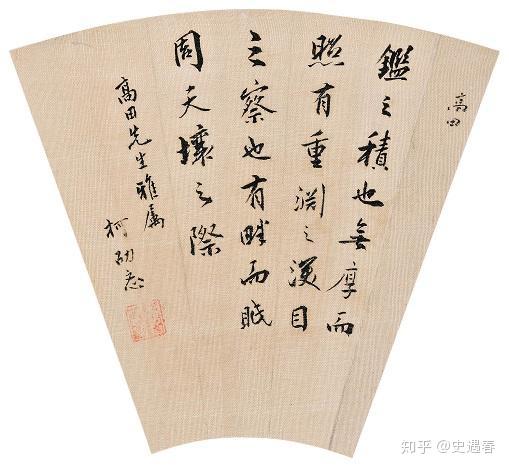 高田
鑑之積也無厚而
照有重淵之深目
之察也有畔而眡
周天壤之際
高田先生雅属
柯劭忞
知乎 @史遇春